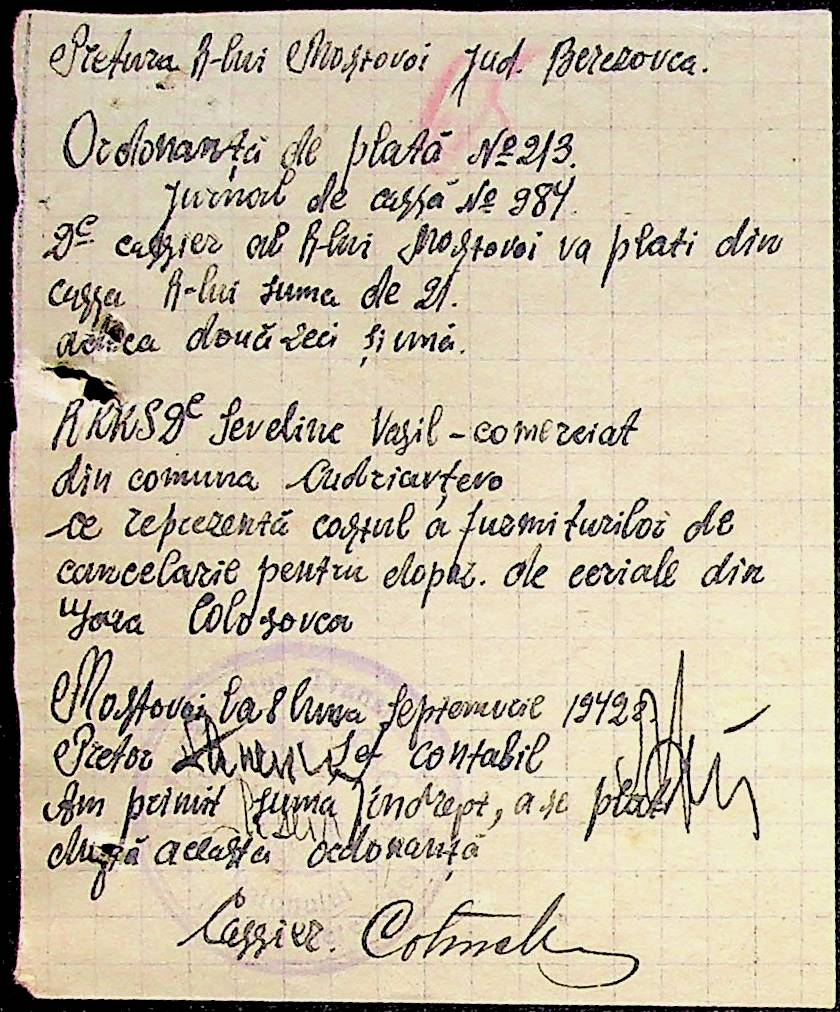 Pretura R-lui Mostovoi Jud. Berezovca.
Ordonanță de plată № 213.
Jurnal de cassă № 984.
Dl cassier al R-lui Mostovoi va plati din
cassa R-lui suma de 21.
adica două zeci și una.
RKKS Dl Seveline Vasil - comerciat
din comuna
ce reprezentă costul a furmiturilor de
cancelarie pentru depoz. de ceriale din
gara Colosovca
Mostovoi la 8 luna Septemvrie 1942
Pretor Șef contabil
Am primit suma indrept, a se plati
după aceasta ordonanță
Cassier.